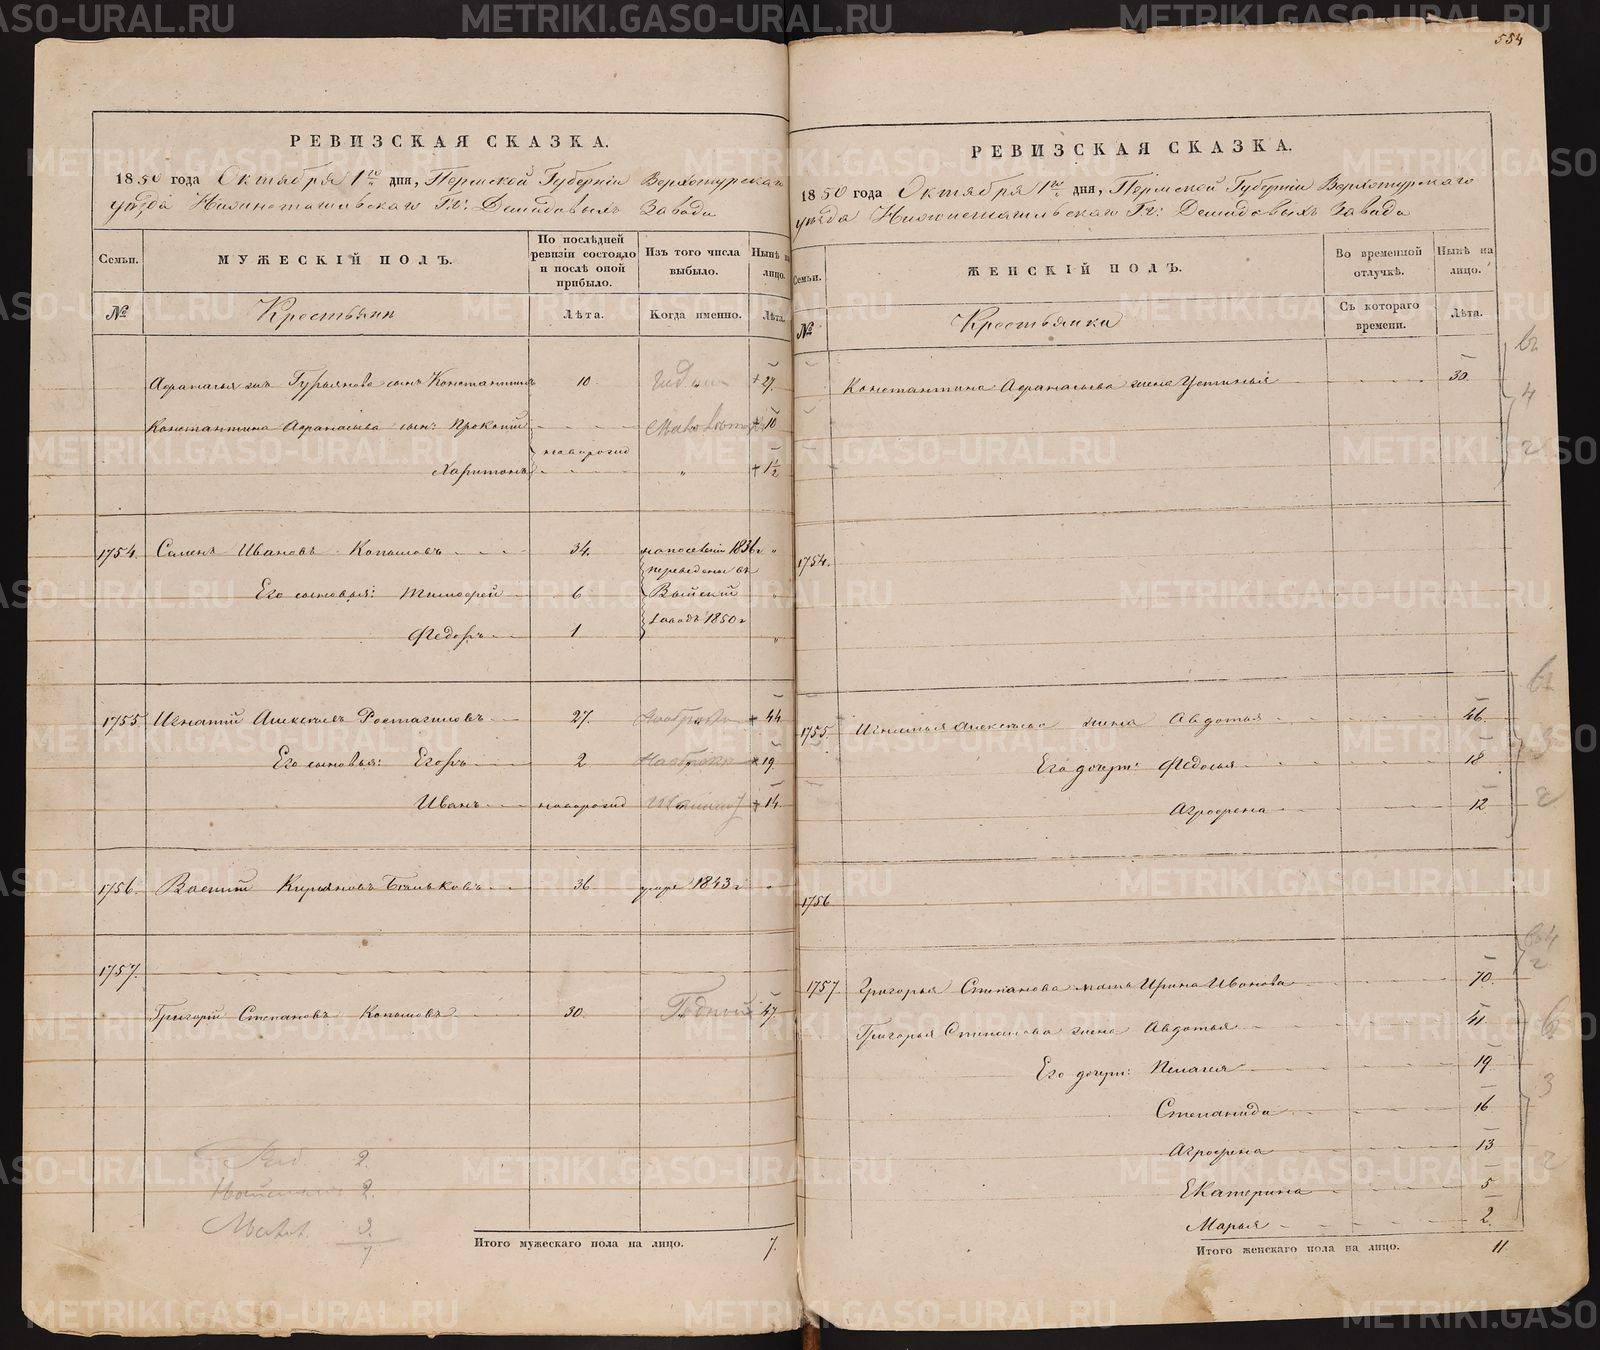 554
РЕВИЗСКАЯ СКАЗКА.
1850 года Октября 1го дня, Пермской Губерніи Верхотурскаго
уѣзда Нижнетагильскаго Гг: Демидовыхъ Завода
Семьи.
МУЖЕСКІЙ ПОЛЪ.
По послѣдней ревизіи состояло и послѣ оной прибыло.
Изъ того числа выбыло.
Нынѣ на лицо.
№
Крестьяне
Лѣта.
Когда именно.
Лѣта.
Афанасья Гурьянова сынъ Константинъ 10 27.
Константина Афанасьева сын: Прокопій 10
новорожд
Харитонъ 1½
1754. Семенъ Ивановъ Копыловъ 34. 1836г
переведены въ
Его сыновья: Тимофей 6 Выйскій
заводъ 1850г
Федоръ 1
1755 Игнатій Алексѣевъ 27. 44.
Его сыновья: Егоръ 2 19
Иванъ новорожд 14.
1756. Василій Кирьяновъ 36 умре 1843г
1757.
Григорій Степановъ Копыловъ 30. Годный 47
2.
2.
3.
7
Итого мужескаго пола на лицо. 7.
РЕВИЗСКАЯ СКАЗКА.
1850 года Октября 1го дня, Пермской Губерніи Верхотурскаго
уѣзда Нижнетагильскаго Гг: Демидовыхъ Завода
Семьи.
ЖЕНСКІЙ ПОЛЪ.
Во временной отлучкѣ.
Нынѣ на лицо.
№
Крестьянки
Съ котораго времени.
Лѣта.
Константина Афанасьева жена Устинья 30.
1754.
1755. Игнатья Алексѣева жена Авдотья 46.
Его дочери: Федосья 18
Агрофена 12
1756
1757 Григорья Степанова мать Ирина Иванова 70.
Григорья Степанова жена Авдотья 41.
Его дочери: Пелагея 19
Степанида 16
Агрофена 13
Екатерина 5
Марья 2.
Итого женскаго пола на лицо. 11
METRIKI.GASO-URAL.RU